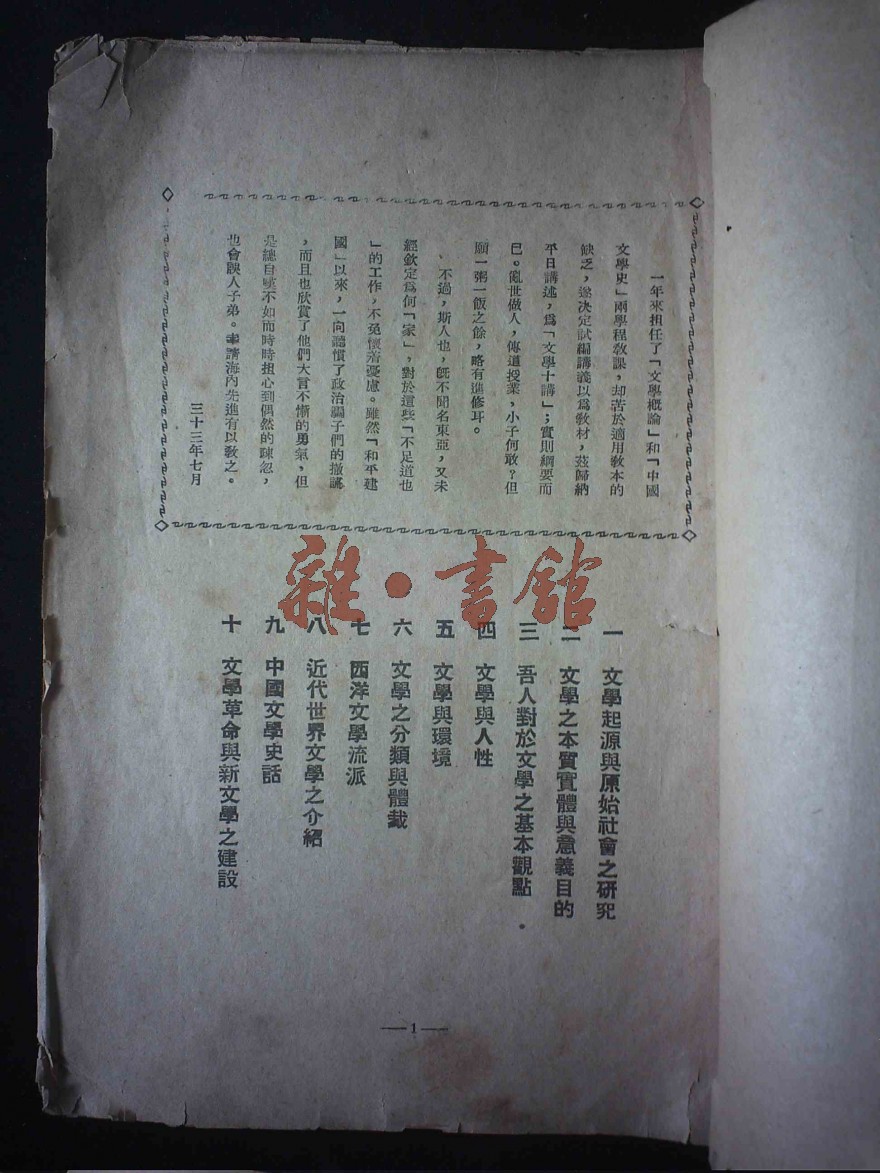 一年來担任了「文學概論」和「中國
文學史」兩學程敎課，却苦於適用敎本的
缺乏，遂決定試編講義以爲敎材，茲歸納
平日講述，爲「文學十講」；實則綱要而
已。亂世做人，傳道授業，小子何敢？但
願一粥一飯之餘，略有進修耳。
、不過，斯人也，旣不聞名東亞，又未
經欽定爲何「家」，對於這些「不足道也
」的工作，不免懷着憂慮。雖然「和平建
國」以來，一向聽慣了政治騙子們的撒謊
，而且也欣賞了他們大言不慚的勇氣，但
是總自嘆不如而時時担心到偶然的疎忽，
也會誤人子弟。事請海內先進有以敎之。
三十三年七月
雜·書館
一 文學起源與原始社會之研究
二 文學之本質實體與意義目的
三 吾人對於文學之基本觀點
四 文學與人性
五 文學與環境
六 文學之分類與體裁
七 西洋文學流派
八 近代世界文學之介紹
九 中國文學史話
十 文學革命與新文學之建設
—1—